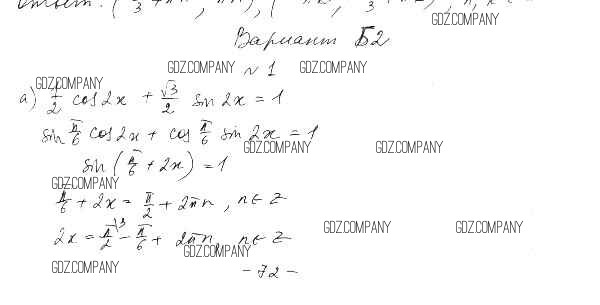 GDZ.COMPANY
Вариант Б2
GDZ.COMPANY №1 GDZ.COMPANY
GDZ.COMPANY
а) 1/2 cos2x + √3/2 sin2x = 1
sin π/6 cos2x + cos π/6 sin2x = 1
GDZ.COMPANY GDZ.COMPANY
sin (π/6 + 2x) = 1
GDZ.COMPANY
π/6 + 2x = π/2 + 2πn, n ∈ Z
GDZ.COMPANY GDZ.COMPANY
2x = π/2 \3 - π/6 + 2πn, n ∈ Z
GDZ.COMPANY
GDZ.COMPANY
- 72 -